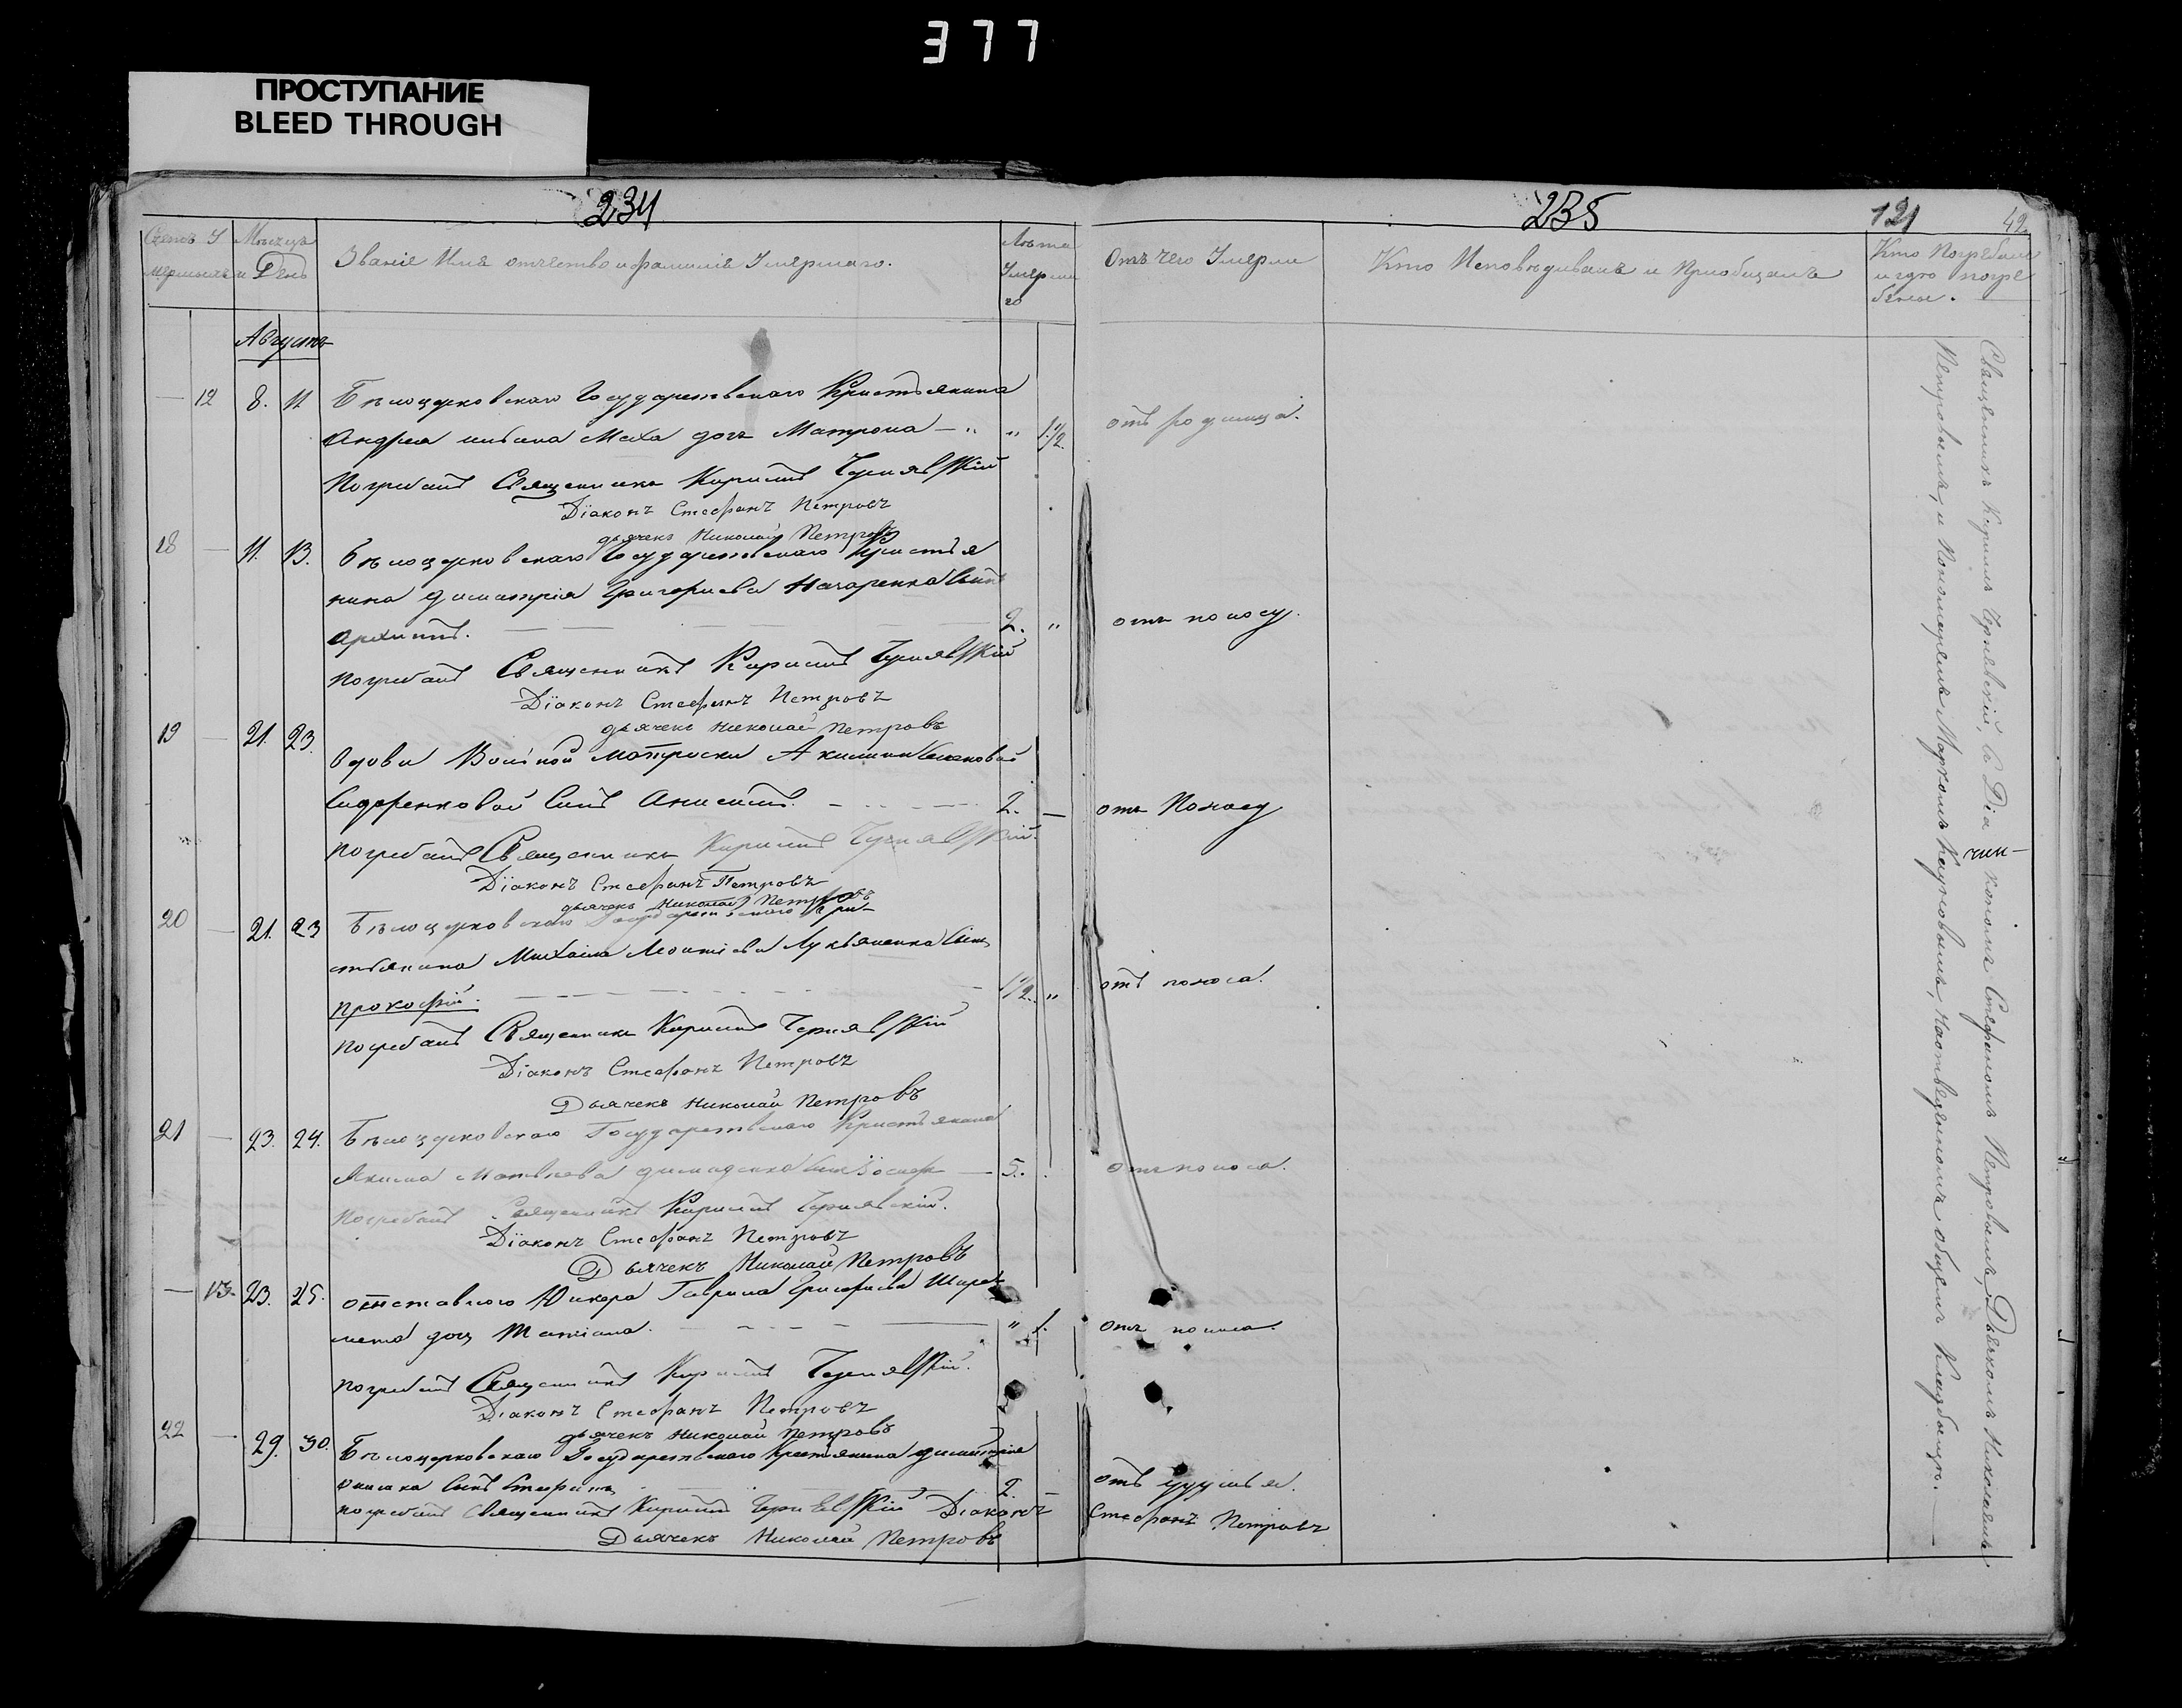 377
ПРОСТУПАНИЕ
BLEED THROUGH
234
235
121
42.
Счетъ У
мершихъ
Мѣсяцъ
и День
Званіе Имя отчество и фамилія Умершаго.
Лѣта
Умерша
го
Отъ чего Умерли
Кто Исповѣдивалъ и Пріобщалъ
Кто Погребалъ
и гдѣ погре
бены.
Августъ
— 12 8. 11 Бѣлоцерковскаго Государственнаго Крестьянина
Андрея Маха дочь Матрона — " " 1 1/2 отъ родимца.
Погребалъ Священникъ Кирилъ Чернявскій
Діаконъ Стефанъ Петровъ
дьячекъ Николай Петровъ
18 — 11. 13. Бѣлоцерковскаго Государственнаго Крестья
нина Димитрія Григорьева Назаренка Сынъ
Архипъ. — 2. " отъ поносу.
погребалъ Священникъ Кирилъ Чернявскій
Діаконъ Стефанъ Петровъ
дьячекъ Николай Петровъ
19 — 21. 23. Вдовы Матроски Акилины Семеновой
Сидоренковой Сынъ Анисимъ. — 2. — отъ Поносу
погребалъ Священникъ Кирилъ Чернявскій.
Діаконъ Стефанъ Петровъ
дьячекъ Николай Петровъ
20 — 21. 23 Бѣлоцерковскаго Государственнаго Кре-
стьянина Михаила Леонтіева Лукьяненка Сынъ
Прокофій. — 1 1/2. " отъ поноса.
погребалъ Священникъ Кирилъ Чернявскій
Діаконъ Стефанъ Петровъ
Дьячекъ Николай Петровъ
21 — 23. 24. Бѣлоцерковскаго Государственнаго Крестьянина
Якима Матвѣева Сынъ Іосифъ — 5. отъ поноса.
Погребалъ Священникъ Кирилъ Чернявскій.
Діаконъ Стефанъ Петровъ
Дьячекъ Николай Петровъ
— 13 23. 25. отставного Юнкора Гаврила Григорьева
дочь Татіана. — " 1. отъ поноса.
погребалъ Священникъ Кирилъ Чернявскій.
Діаконъ Стефанъ Петровъ
дьячекъ Николай Петровъ
22 — 29. 30. Бѣлоцерковскаго Государственнаго Крестьянина Димитрія
Сынъ Стефанъ — 2. — отъ удушья.
погребалъ Священникъ Кирилъ Чернявскій Діаконъ Стефанъ Петровъ
Дьячекъ Николай Петровъ
Священникъ Кирилъ Чернявскій, съ Діакономъ Стефаномъ Петровымъ, Дьячкомъ Николаемъ
Петровымъ, и Пономаремъ на общемъ Кладбищѣ. —